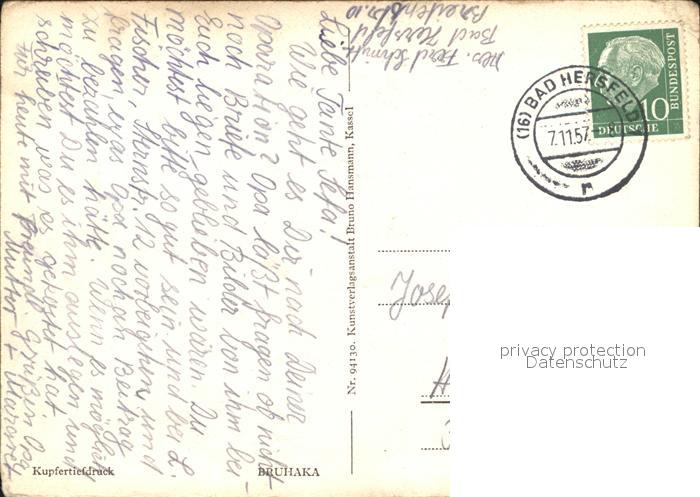 Liebe Tante Sefa!
Wie geht es Dir nach Deiner
Operation? Opa läßt fragen ob nicht
noch Briefe und Bilder von ihm bei
Euch liegen geblieben wären. Du
möchtest bitte so gut sein und bei L.
Fischer, 12 vorbeigehen und
fragen, was Opa noch an Beitrag
zu bezahlen hätte. Wenn es möglich
möchtest Du es ihm auslegen und
schreiben was es gekostet hat.
Für heute mit freundl. Grüßen Opa
Mutter +
Abs. Ferd. Schmidt
Bad Hersfeld
10
(16) BAD HERSFELD
7.11.57
10
DEUTSCHE
BUNDESPOST
Nr. 94130. Kunstverlagsanstalt Bruno Hansmann, Kassel
Josef
privacy protection
Datenschutz
Kupfertiefdruck
BRUHAKA